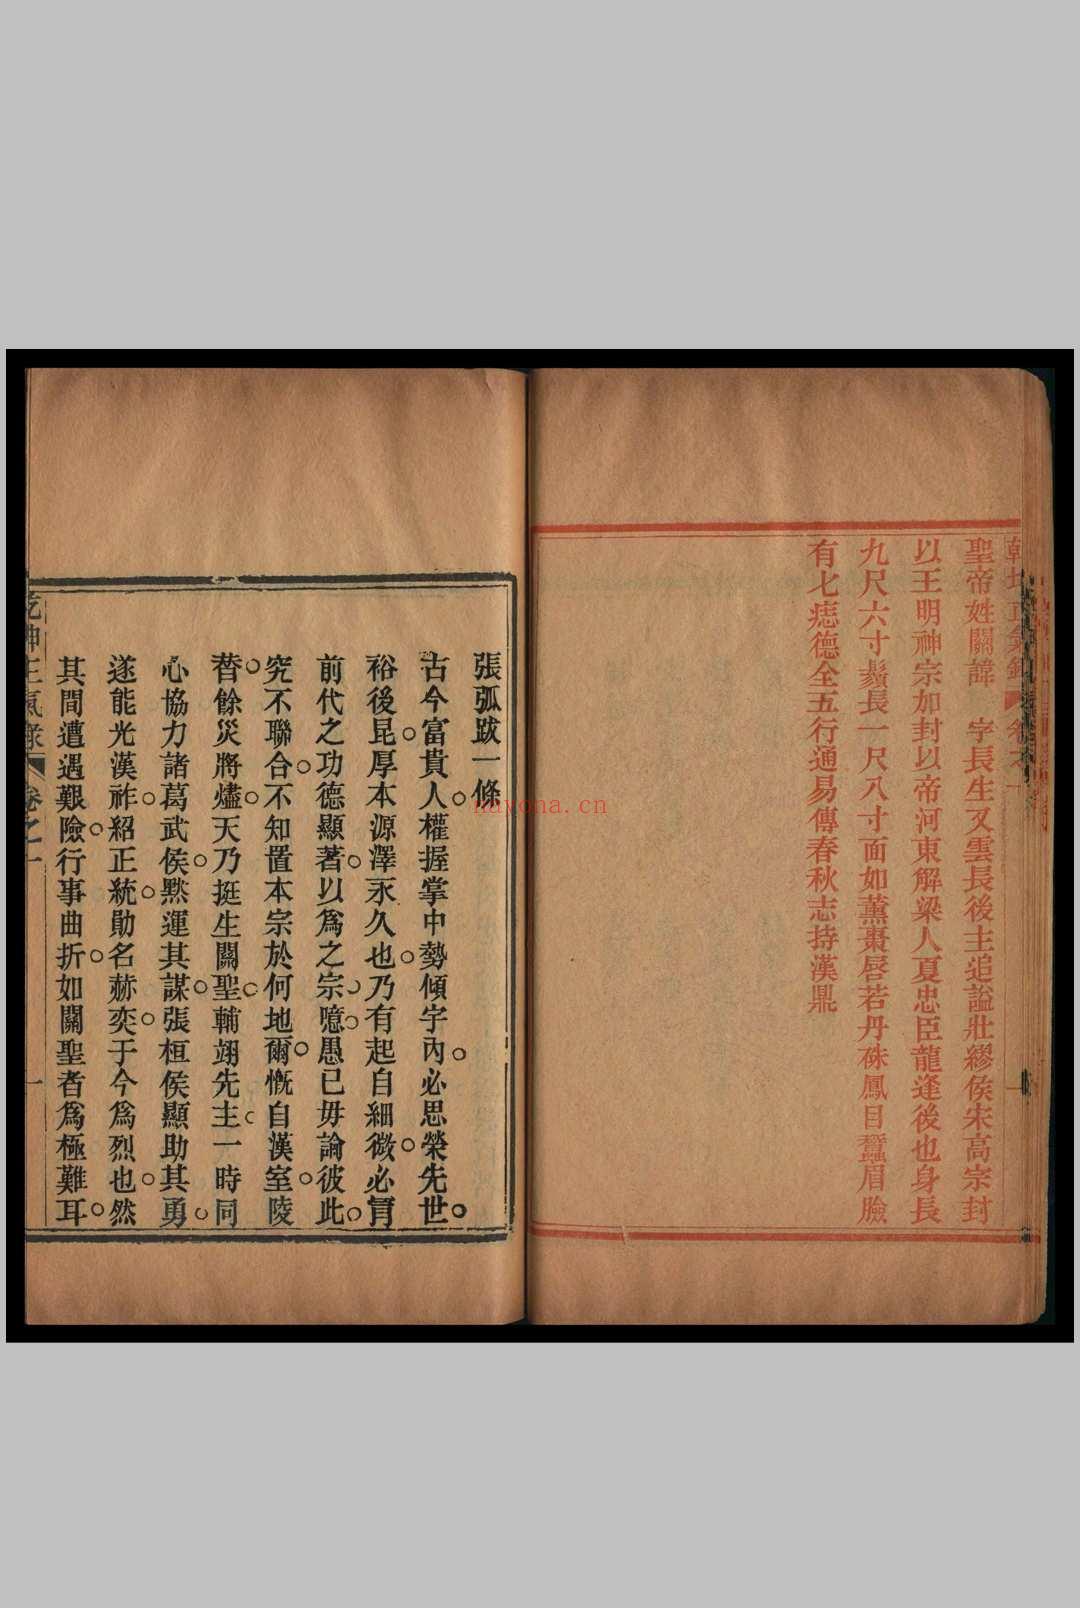 聖帝姓關諱 字長生又雲長後主追謚壯繆侯宋高宗封
以王明神宗加封以帝河東解梁人夏忠臣龍逢後也身長
九尺六寸鬚長一尺八寸面如薰棗唇若丹硃鳳目蠶眉臉
有七痣德全五行通易傳春秋志持漢鼎
張弧跋一條
古今富貴人。權握掌中勢傾宇內。必思榮先世。
裕後昆。厚本源澤永久也。乃有起自細微。必胥
前代之功德顯著。以爲之宗。噫。愚已毋論彼此。
究不聯合。不知置本宗於何地爾。慨自漢室。陵
替。餘災將燼。天乃挺生關聖。輔翊先主。一時同
心協力諸葛武侯。黙運其謀。張桓侯顯助其勇。
遂能光漢祚。紹正統。勛名赫奕。于今爲烈也。然
其間遭遇艱險。行事曲折。如關聖者爲極難耳。
乾坤正氣錄 卷之一
一
nayona.cn